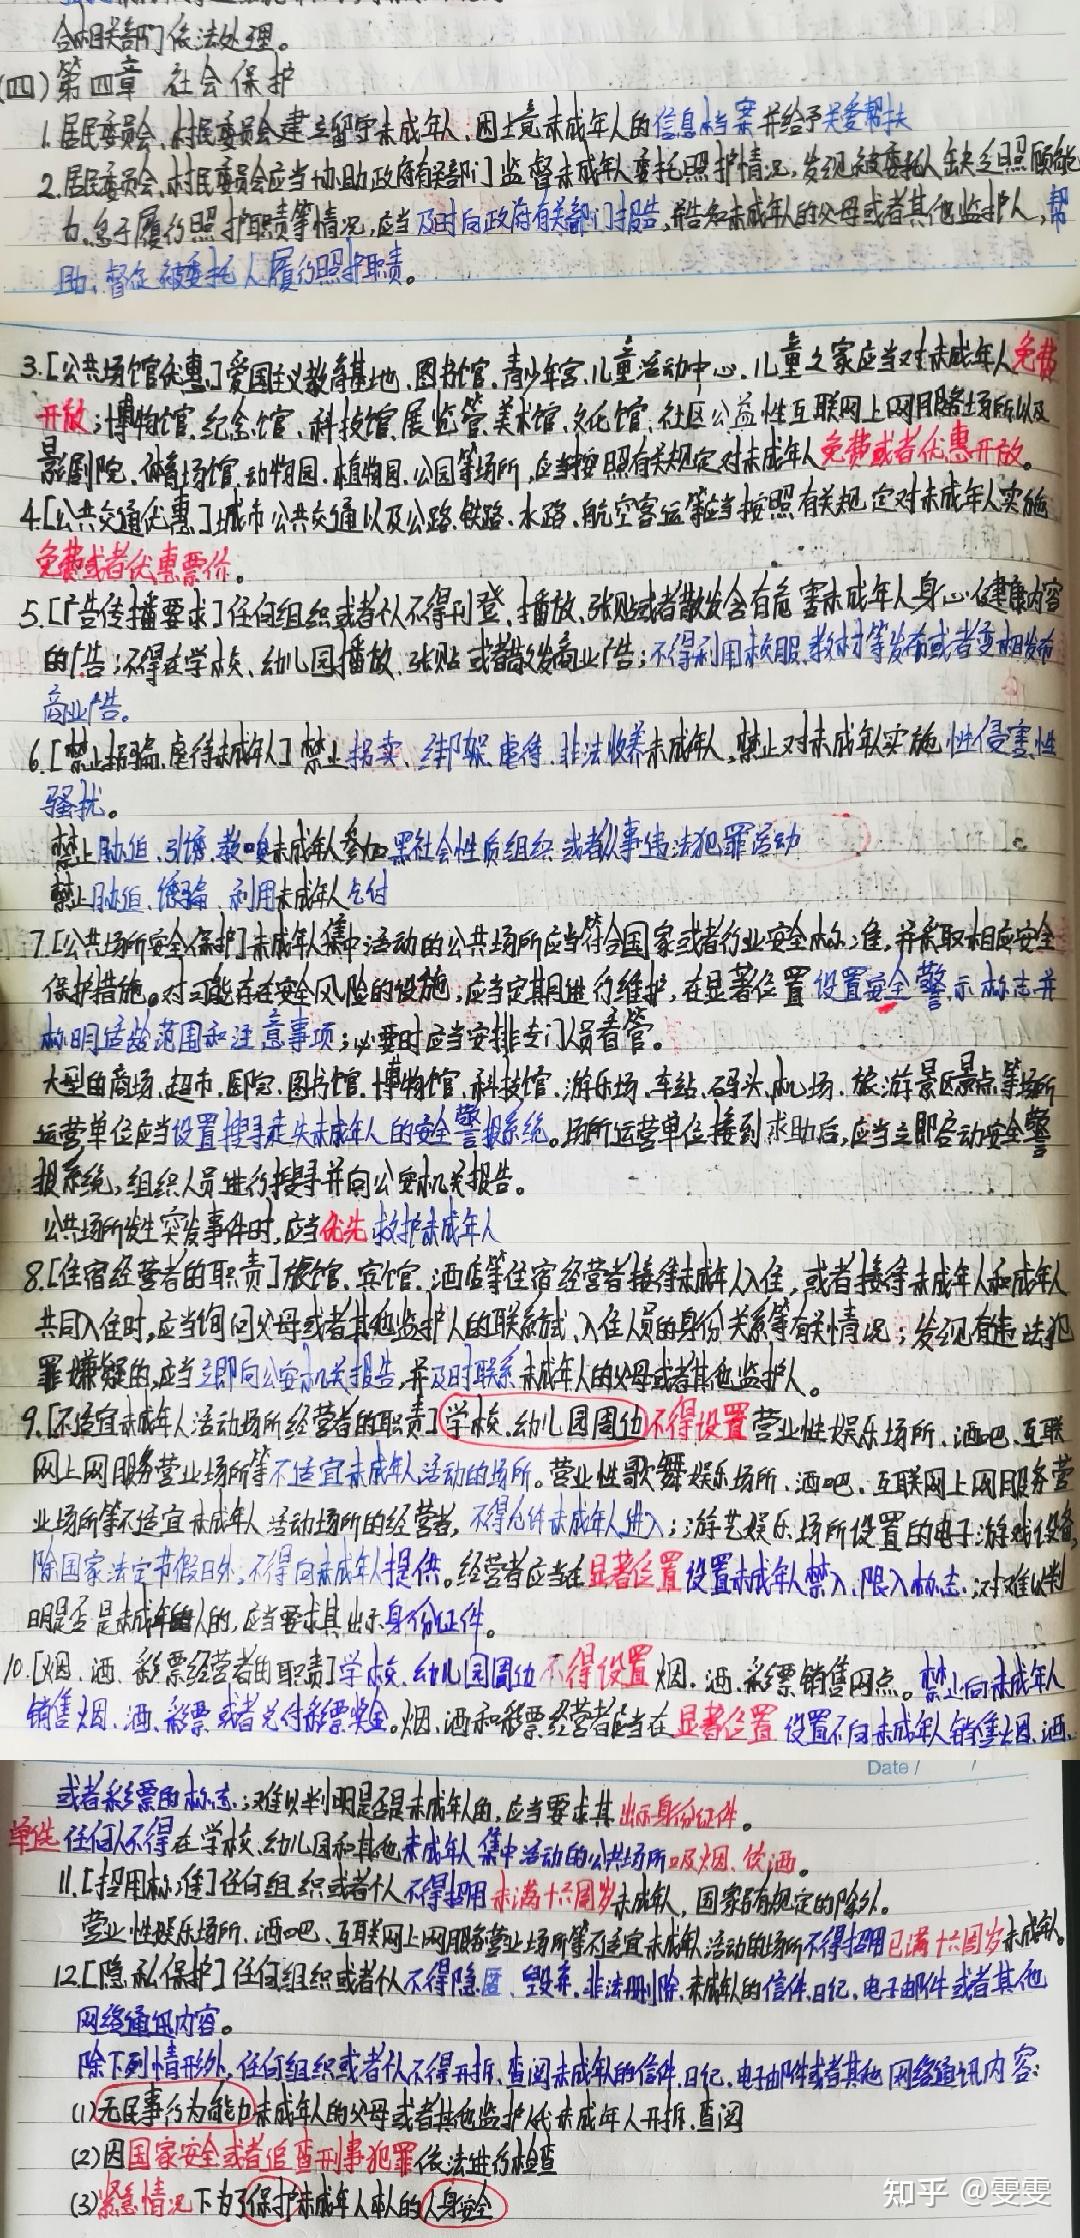 合相关部门依法处理。
(四)第四章 社会保护
1.居民委员会、村民委员会建立留守未成年人、困境未成年人的信息档案并给予关爱帮扶
2.居民委员会、村民委员会应当协助政府有关部门监督未成年人委托照护情况,发现被委托人缺乏照顾能
力、怠于履行照护职责等情况,应当及时向政府有关部门报告,并告知未成年人的父母或者其他监护人,帮
助、督促被委托人履行照护职责。
3.[公共场馆优惠]爱国主义教育基地、图书馆、青少年宫、儿童活动中心、儿童之家应当对未成年人免费
开放;博物馆、纪念馆、科技馆、展览馆、美术馆、文化馆、社区公益性互联网上网服务场所以及
影剧院、体育场馆、动物园、植物园、公园等场所,应当按照有关规定对未成年人免费或者优惠开放。
4.[公共交通优惠]城市公共交通以及公路、铁路、水路、航空客运等应当按照有关规定对未成年人实施
免费或者优惠票价。
5.[广告传播要求]任何组织或者个人不得刊登、播放、张贴或者散发含有危害未成年人身心健康内容
的广告;不得在学校、幼儿园播放、张贴或者散发商业广告;不得利用校服、教材等发布或者变相发布
商业广告。
6.[禁止拐骗、虐待未成年人]禁止拐卖、绑架、虐待、非法收养未成年人,禁止对未成年人实施性侵害、性
骚扰。
禁止胁迫、引诱、教唆未成年人参加黑社会性质组织或者从事违法犯罪活动
禁止胁迫、诱骗、利用未成年人乞讨
7.[公共场所安全保护]未成年人集中活动的公共场所应当符合国家或者行业安全标准,并采取相应安全
保护措施。对可能存在安全风险的设施,应当定期进行维护,在显著位置设置安全警示标志并
标明适龄范围和注意事项;必要时应当安排专门人员看管。
大型的商场、超市、医院、图书馆、博物馆、科技馆、游乐场、车站、码头、机场、旅游景区景点等场所
运营单位应当设置搜寻走失未成年人的安全警报系统。场所运营单位接到求助后,应当立即启动安全警
报系统,组织人员进行搜寻并向公安机关报告。
公共场所发生突发事件时,应当优先救护未成年人
8.[住宿经营者的职责]旅馆、宾馆、酒店等住宿经营者接待未成年人入住,或者接待未成年人和成年人
共同入住时,应当询问父母或者其他监护人的联系方式、入住人员的身份关系等有关情况;发现有违法犯
罪嫌疑的,应当立即向公安机关报告,并及时联系未成年人的父母或者其他监护人。
9.[不适宜未成年人活动场所经营者的职责]学校、幼儿园周边不得设置营业性娱乐场所、酒吧、互联
网上网服务营业场所等不适宜未成年人活动的场所。营业性歌舞娱乐场所、酒吧、互联网上网服务营
业场所等不适宜未成年人活动场所的经营者,不得允许未成年人进入;游艺娱乐场所设置的电子游戏设备,
除国家法定节假日外,不得向未成年人提供。经营者应当在显著位置设置未成年人禁入、限入标志;对难以判
明是否是未成年人的,应当要求其出示身份证件。
10.[烟、酒、彩票经营者的职责]学校、幼儿园周边不得设置烟、酒、彩票销售网点。禁止向未成年人
销售烟、酒、彩票或者兑付彩票奖金。烟、酒和彩票经营者应当在显著位置设置不向未成年人销售烟、酒、
Date / /
或者彩票的标志;难以判明是否是未成年人的,应当要求其出示身份证件。
单选 任何人不得在学校、幼儿园和其他未成年人集中活动的公共场所吸烟、饮酒。
11.[招用标准]任何组织或者个人不得招用未满十六周岁未成年人,国家另有规定的除外。
营业性娱乐场所、酒吧、互联网上网服务营业场所等不适宜未成年人活动的场所不得招用已满十六周岁未成年人。
12.[隐私保护]任何组织或者个人不得隐匿、毁弃、非法删除未成年人的信件、日记、电子邮件或者其他
网络通讯内容。
除下列情形外,任何组织或者个人不得开拆、查阅未成年人的信件、日记、电子邮件或者其他网络通讯内容:
(1)无民事行为能力未成年人的父母或者其他监护人代未成年人开拆、查阅
(2)因国家安全或者追查刑事犯罪依法进行检查
(3)紧急情况下为了保护未成年人本人的人身安全
知乎 @雯雯